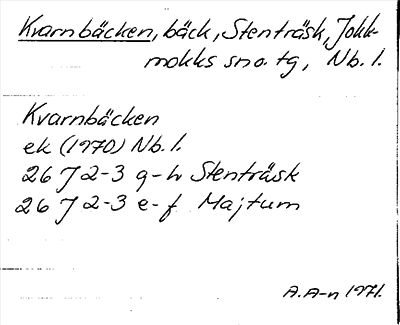 Kvarnbäcken, bäck, Stenträsk, Jokk-
mokks sn o. tg, Nb. l.
Kvarnbäcken
ek (1970) Nb. l.
26 J 2-3 g-h Stenträsk
26 J 2-3 e-f Majtum
A. A-n 1971.